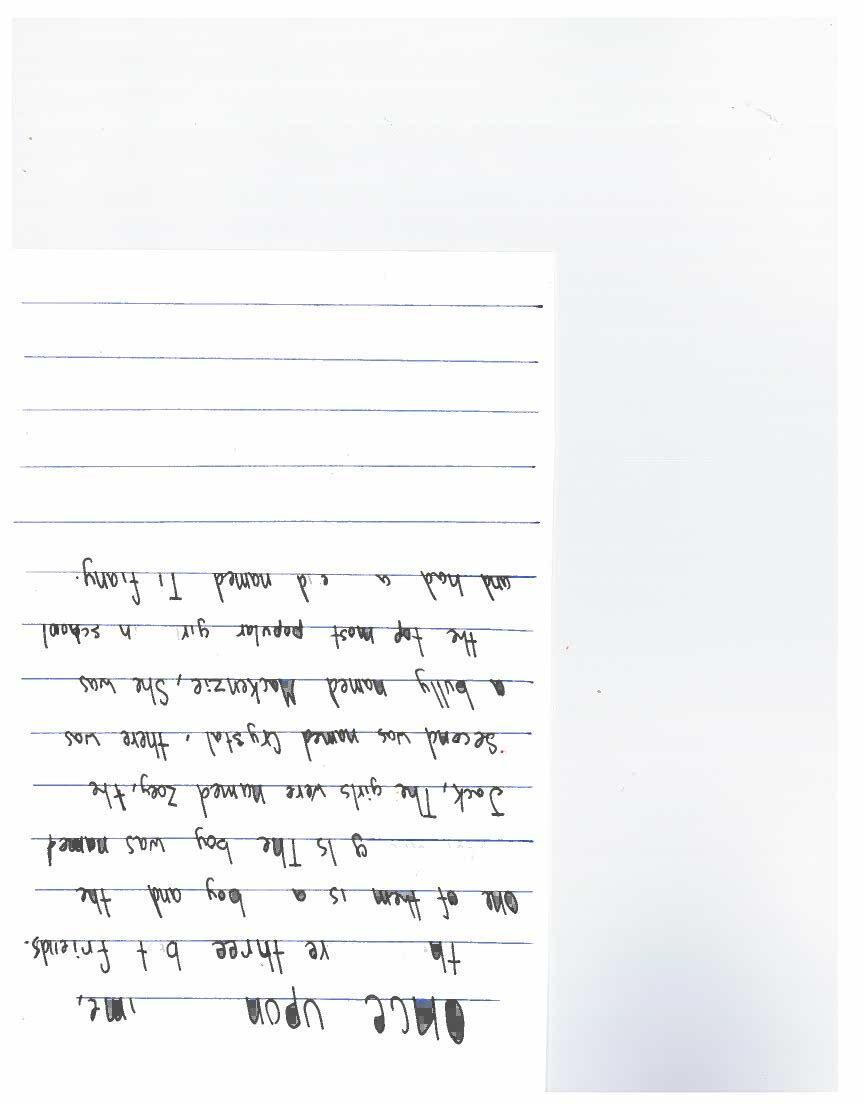 once upon ime,
th re three b t friends.
one of them is a boy and the
g ls The boy was named
Jack, The girls were named Zoey, the
Second was named Crystal, there was
a bully named Mackenzie, She was
the top most popular gir n school
and had a named Ti fiany.